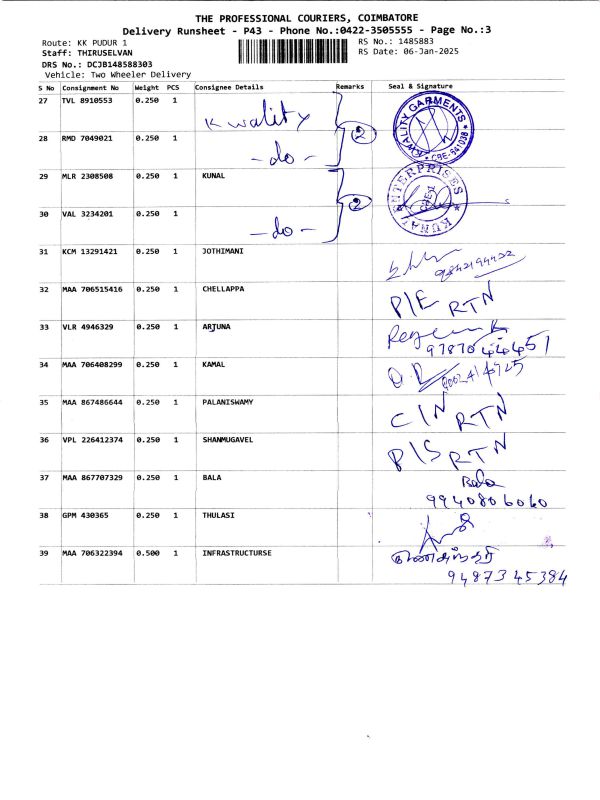 THE PROFESSIONAL COURIERS, COIMBATORE
Delivery Runsheet - P43 - Phone No.:0422-3505555 - Page No.:3
Route: KK PUDUR 1 RS No.: 1485883
Staff: THIRUSELVAN RS Date: 06-Jan-2025
DRS No.: DCJB148588303
Vehicle: Two Wheeler Delivery
S No Consignment No Weight PCS Consignee Details Remarks Seal & Signature
27 TVL 8910553 0.250 1 Kwality 2 KWALITY GARMENTS * CBE-641038 *
28 RMD 7049021 0.250 1 - do -
29 MLR 2308508 0.250 1 KUNAL 2 KUNAL ENTERPRISES
30 VAL 3234201 0.250 1 - do -
31 KCM 13291421 0.250 1 JOTHIMANI
32 MAA 706515416 0.250 1 CHELLAPPA P/E RTN
33 VLR 4946329 0.250 1 ARJUNA
9787044451
34 MAA 706408299 0.250 1 KAMAL
35 MAA 867486644 0.250 1 PALANISWAMY C/N RTN
36 VPL 226412374 0.250 1 SHANMUGAVEL P/S RTN
37 MAA 867707329 0.250 1 BALA Bala
9940806060
38 GPM 430365 0.250 1 THULASI
39 MAA 706322394 0.500 1 INFRASTRUCTURSE
9487345384